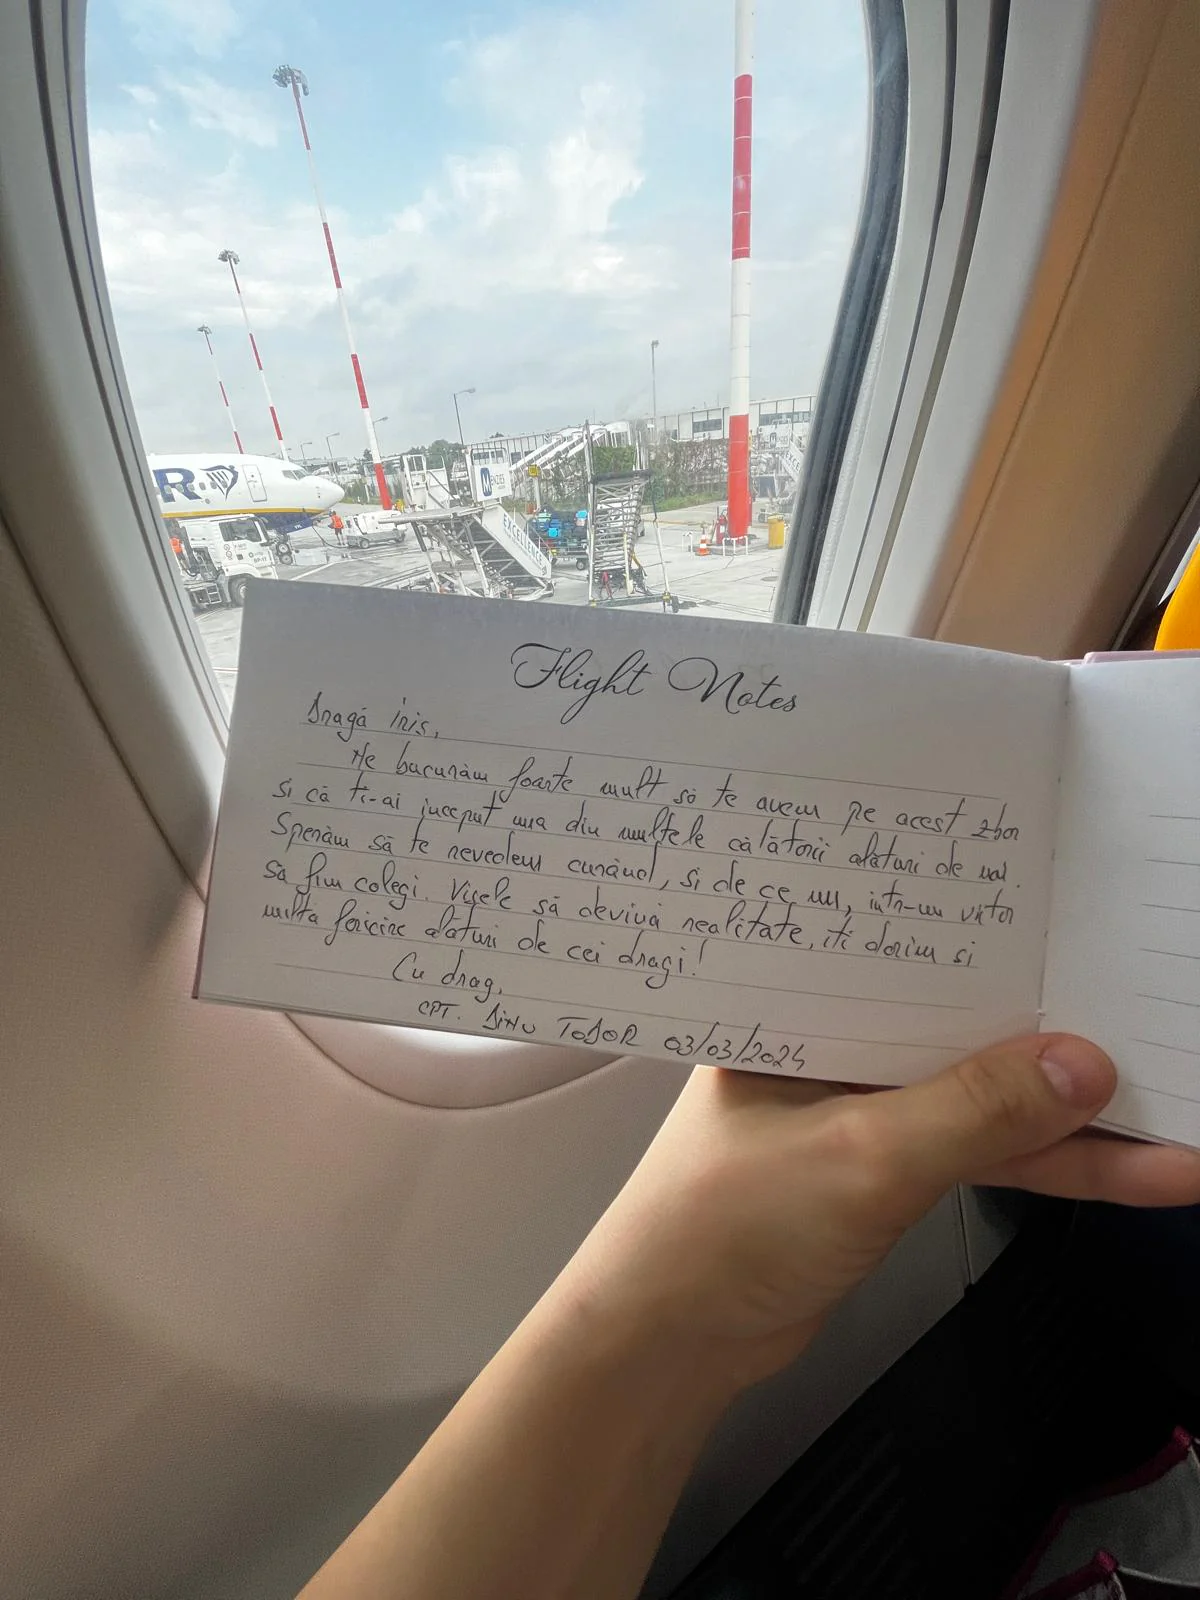 R
MENZIES
EXCELLENCE
Flight Notes
Dragă Iris,
Ne bucurăm foarte mult să te avem pe acest zbor
si că ti-ai inceput una din multele călătorii alături de noi.
Sperăm să te revedem curând, si de ce nu, intr-un viitor
să fim colegi. Visele să devină realitate, iti dorim si
multa fericire alaturi de cei dragi!
Cu drag,
CPT. DINU TODOR 03/03/2024